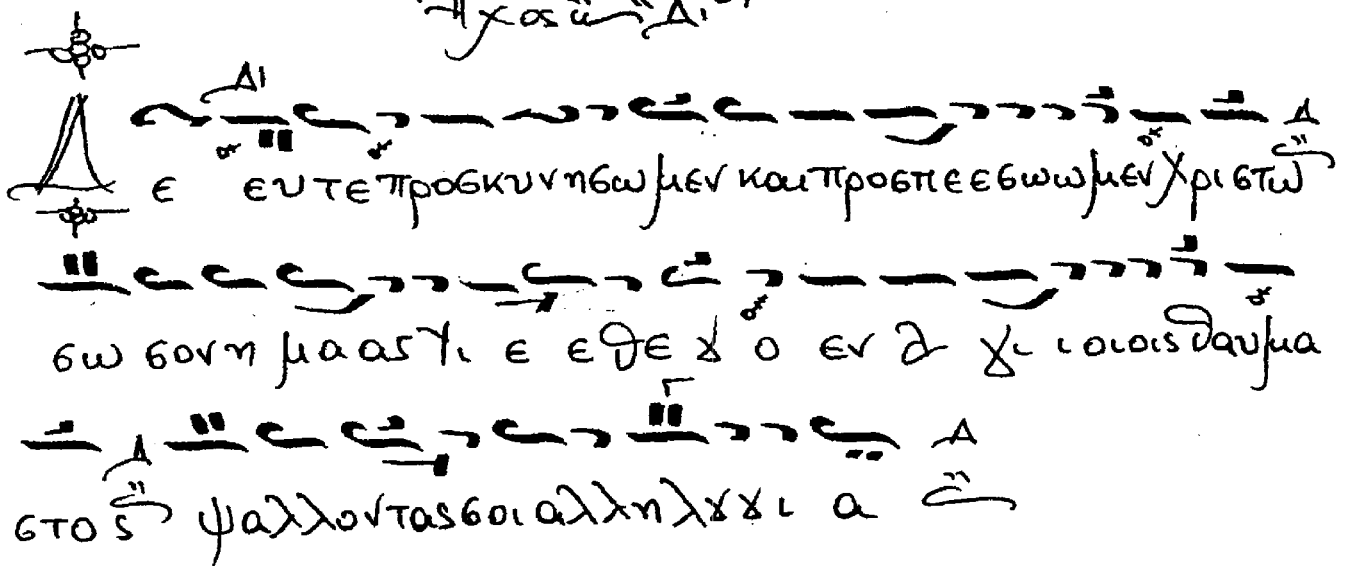 Ἦχος Δι
Δι
Δ ε ευτε προσκυνησωμεν και προσπεεσωωμεν Χριστω
σωσον ημαας Υι ε ε Θεȣ ο εν αγιιοιοις θαυμα
στος ψαλλοντας σοι αλληλȣȣι α